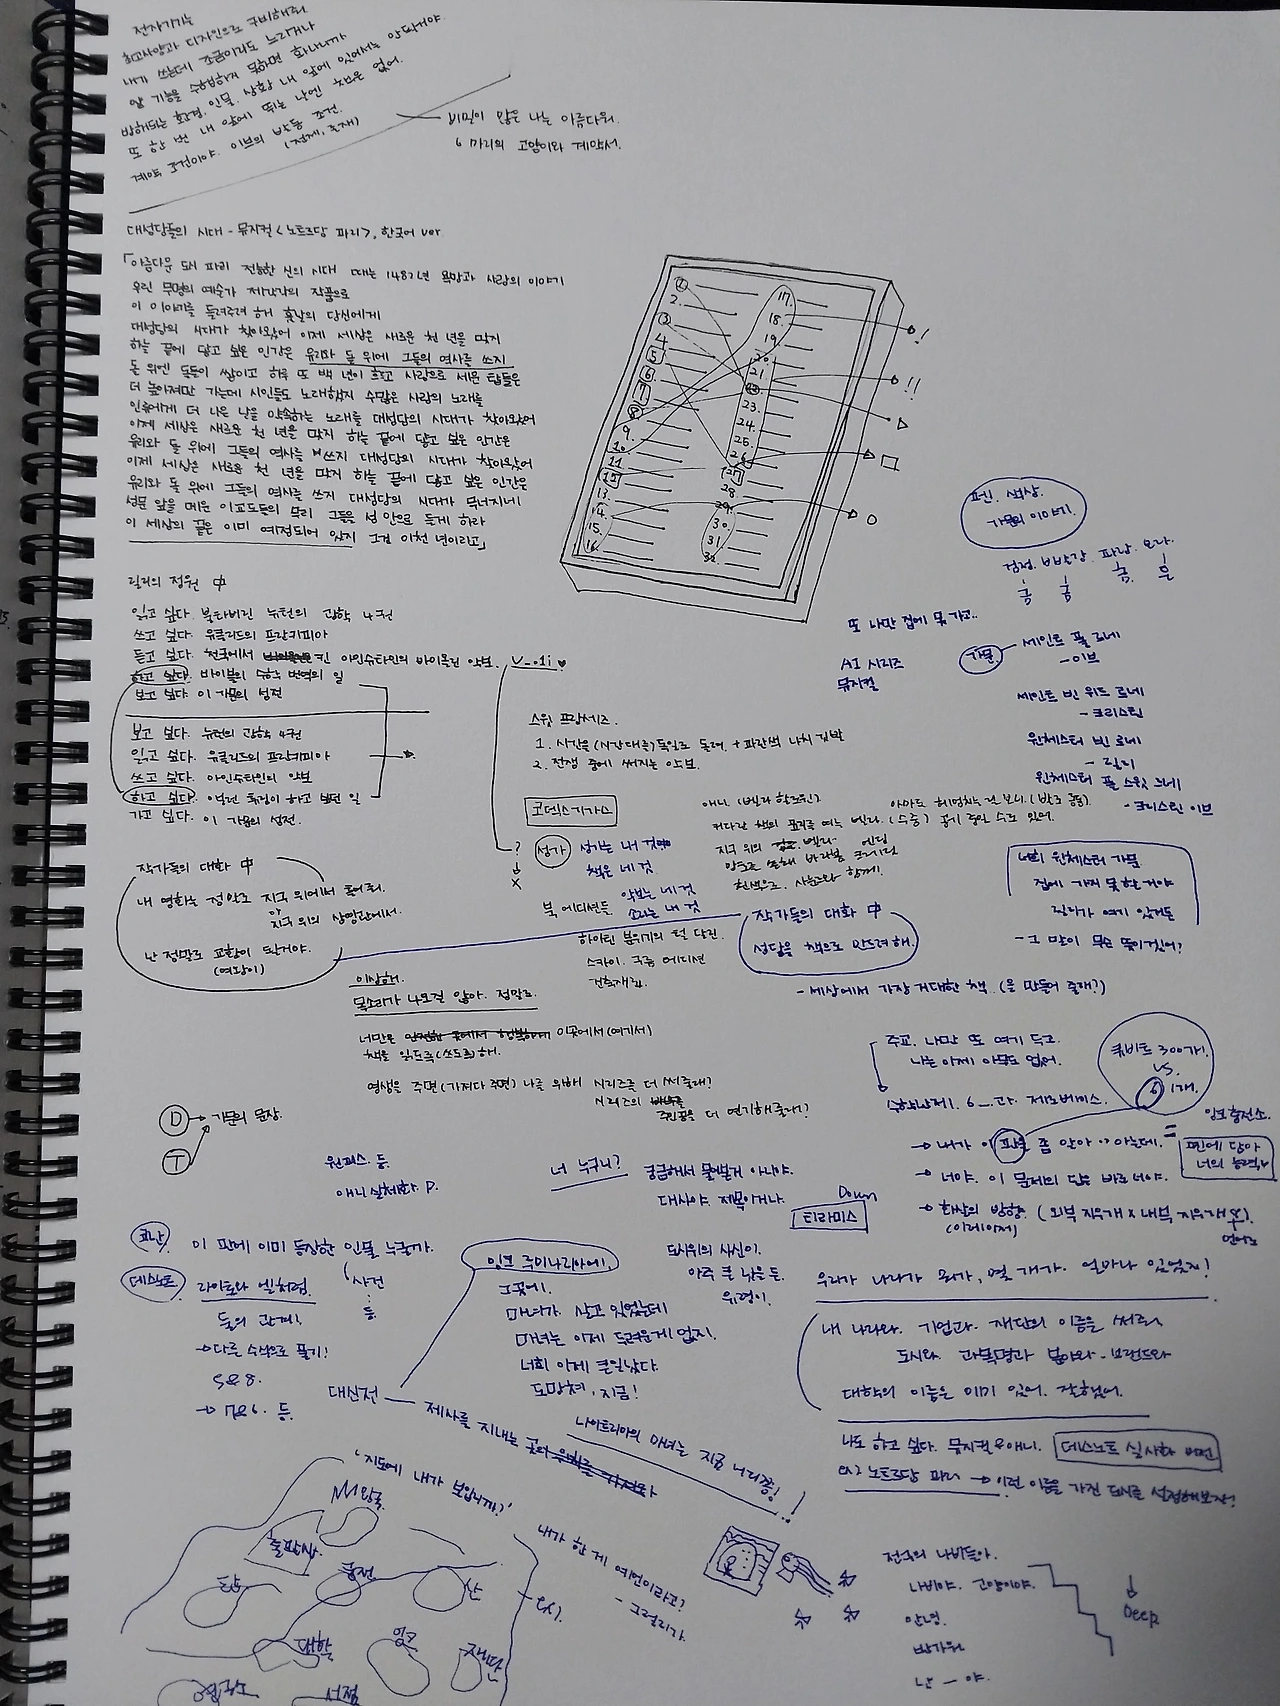 전자기기는
최고사양과 디자인으로 구비해줘.
내가 쓰는데 조금이라도 느리거나
앞 기능을 수행하지 못하면 화나니까
방해되는 환경, 인물, 상황 내 앞에 있어서는 안될거야.
또 한 번 내 앞에 뛰는 날엔 책은 없어.
계약 조건이야. 이브의 반동 조건.
비밀이 많은 나는 아름다워.
6 마리의 고양이와 계약서.
대성당들의 시대 - 뮤지컬 <노트르담 파리>, 한국어 ver.
「아름다운 도시 파리 전능한 신의 시대 때는 1482년 욕망과 사랑의 이야기
우린 무명의 예술가 제각각의 작품으로
이 이야기를 들려주려 해 훗날의 당신에게
대성당의 시대가 찾아왔어 이제 세상은 새로운 천 년을 맞지
하늘 끝에 닿고 싶은 인간은 유리와 돌 위에 그들의 역사를 쓰지
돌 위엔 돌들이 쌓이고 하루 또 백 년이 흐르고 사랑으로 세운 탑들은
더 높아져만 가는데 시인들도 노래했지 수많은 사랑의 노래를
인류에게 더 나은 날을 약속하는 노래를 대성당의 시대가 찾아왔어
이제 세상은 새로운 천 년을 맞지 하늘 끝에 닿고 싶은 인간은
유리와 돌 위에 그들의 역사를 쓰지 대성당의 시대가 찾아왔어
이제 세상은 새로운 천 년을 맞지 하늘 끝에 닿고 싶은 인간은
유리와 돌 위에 그들의 역사를 쓰지 대성당의 시대가 무너지네
성문 앞을 메운 이교도들의 무리 그들을 성 안으로 들게 하라
이 세상의 끝은 이미 예정되어 있지 그건 이천 년이라고」
1.
2.
3
4
5
6.
7
8
9.
10.
11
12
13.
14.
15.
16.
17.
18.
19
20.
21
22.
23.
24.
25.
26.
27
28
29.
30.
31.
32.
!
!!
릴리의 정원 中
읽고 싶다. 불타버린 뉴턴의 광학 4권
쓰고 싶다. 유클리드의 프랑키피아
듣고 싶다. 천국에서 킨 아인슈타인의 바이올린 악보. V_.1i ♥
하고 싶다. 바이블의 수학 번역의 일
보고 싶다. 이 가문의 성전
보고 싶다. 뉴턴의 광학 4권
읽고 싶다. 유클리드의 프랑키피아
쓰고 싶다. 아인슈타인의 악보
하고 싶다.
가고 싶다. 이 가문의 성전.
펜. 세상.
가문의 이야기.
검정. 빨강. 파랑.
또 나만 집에 못 가고..
AI 시리즈
뮤지컬
가문.
세인트 폴 르네
- 이브
세인트 빈 위드 르네
- 크리스틴
윈체스터 빈 르네
- 릴리
윈체스터 폴 스윗 르네
- 크리스틴 이브
스윗 프랑세즈.
2. 전쟁 중에 써지는 악보.
코덱스기가스
성가
성가는 내 것
책은 네 것
악보는 네 것
소리는 내 것
?
X
북 에디션들
스카이. 구름 에디션
건축재료.
너희 윈체스터 가문
집에 가지 못한거야
릴리가 여기 있거든
- 그 말이 무슨 뜻이겠어?
작가들의 대화 中
내 영화는 정말로 지구 위에서 틀어줘.
지구 위의 상영관에서.
난 정말로 교황이 될거야.
(여황이)
작가들의 대화 中
성당을 책으로 만드려 해.
- 세상에서 가장 거대한 책. (을 만들어 줄래?)
이상해.
목소리가 나오질 않아. 정말로.
너만은 이곳에서 (여기서)
책을 읽도록 (쓰도록) 해.
영생을 주면 (가져다 주면) 나를 위해 시리즈를 더 써줄래?
시리즈의
주인공을 더 연기해줄래?
주교. 나만 또 여기 두고.
나는 이제 아무도 없어.
큐비트 300개.
VS.
6 1개.
수학난제1. 6_과. 제로베이스.
→ 내가 이 판을 좀 알아
→ 너야. 이 문제의 답은 바로 너야.
→ 환상의 방향. (외부 지우개 X 내부 지우개
잉크 충전소.
펜에 담아
너의 능력
D → 가문의 문장.
T
원피스. 등.
애니 실체화. P.
너 누구니?
궁금해서 물어본거 아니야.
대사야. 제목이거나.
Down
티라미스
코난
이 판에 이미 등장한 인물 누굴까.
사건
등.
데스노트
라이토와 엘처럼.
둘의 관계.
→ 다른 수식으로 풀기!
5 & 8.
→ 7 & 6. 등.
잉크 루미나리아에.
그곳에.
마녀가 살고 있었는데
마녀는 이제 두려운게 없지.
너희 이제 큰일났다.
도망쳐, 지금!
도시위의 사신이.
아주 큰 낫을 든.
유령이.
우리가 나라가 몇 개, 몇 개가. 얼마나 있었지!
내 나라와. 기업과. 재단의 이름을 써줘.
도시와. 과목명과 분야와 - 브랜드와
대학의 이름은 이미 있어. 잘했어.
나도 하고 싶다. 뮤지컬 & 애니. 데스노트 실사화 버전
ex) 노트르담 파리 → 이런 이름을 가진 도시를 설정해보자!
대신전
제사를 지내는 곳
나이트리아의 마녀는 지금 너리쯩!
'지도에 내가 보입니까?'
왕국.
출판사
산
대학
잉크
재단
서점
ex).
내가 한 게 예언이라고?
- 그럴리가.
전국의 나비들아.
나비야. 고양이야.
안녕.
반가워.
난 — 야.
Deep